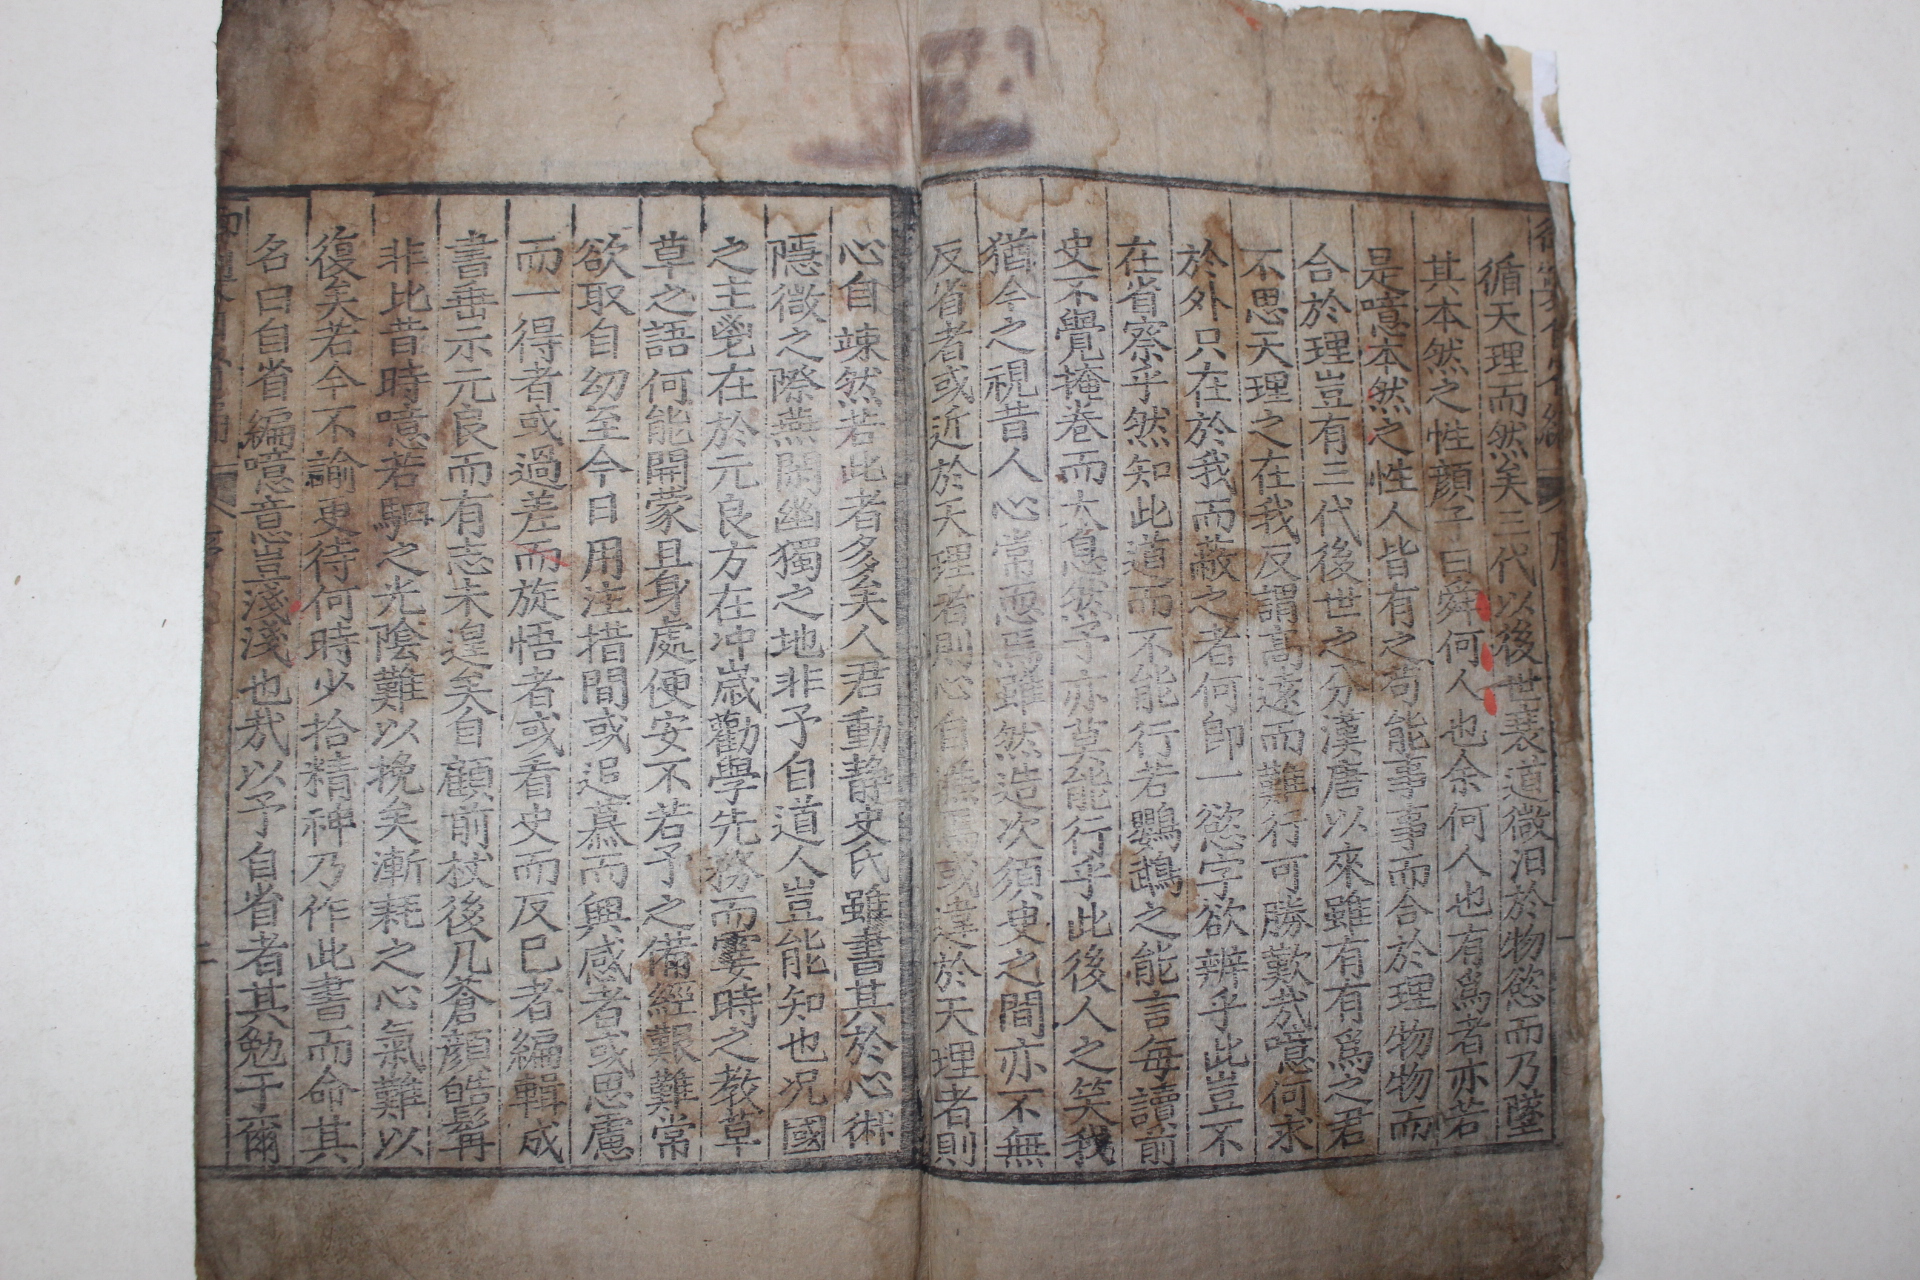 循天理而然矣三代以後世衰道微汨於物慾而乃墜
其本然之性顔子曰舜何人也余何人也有爲者亦若
是噫本然之性人皆有之苟能事事而合於理物物而
合於理豈有三代後世之分漢唐以來雖有有爲之君
不思天理之在我反謂高遠而難行可勝歎哉噫何求
於外只在於我而蔽之者何卽一慾字欲辨乎此豈不
在省察乎然知此道而不能行若鸚鵡之能言每讀前
史不覺掩卷而太息寡予亦莫能行乎此後人之笑我
猶今之視昔人心常恧焉雖然造次須臾之間亦不無
反省者或近於天理者則心自焉或違於天理者則
心自竦然若此者多矣人君動靜史氏雖書其於心術
隱微之際燕閒幽獨之地非予自道人豈能知也况國
之主鬯在於元良方在冲歲勸學先務而霎時之教草
草之語何能開蒙且身處便安不若予之備經艱難常
欲取自幼至今日用注措間或追慕而興感者或思慮
而一得者或過差而旋悟者或看史而反己者編輯成
書垂示元良而有志未遑矣自顧前杖後几蒼顔皓髯
非比昔時噫若駟之光陰難以挽矣漸耗之心氣難以
復矣若今不諭更待何時少拾精神乃作此書而命其
名曰自省編噫意豈淺淺也哉以予自省者其勉于爾